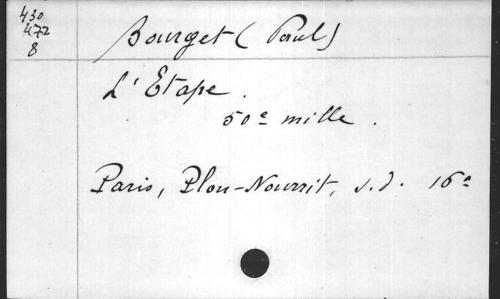 430
472
8
Bourget (Paul)
L'Etape.
50e mille.
Paris, Plon-Nourrit, s.d. 16º